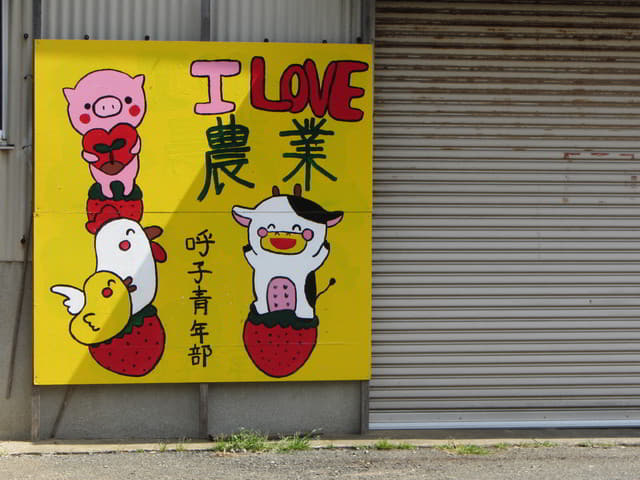 I LOVE
農業
呼子青年部